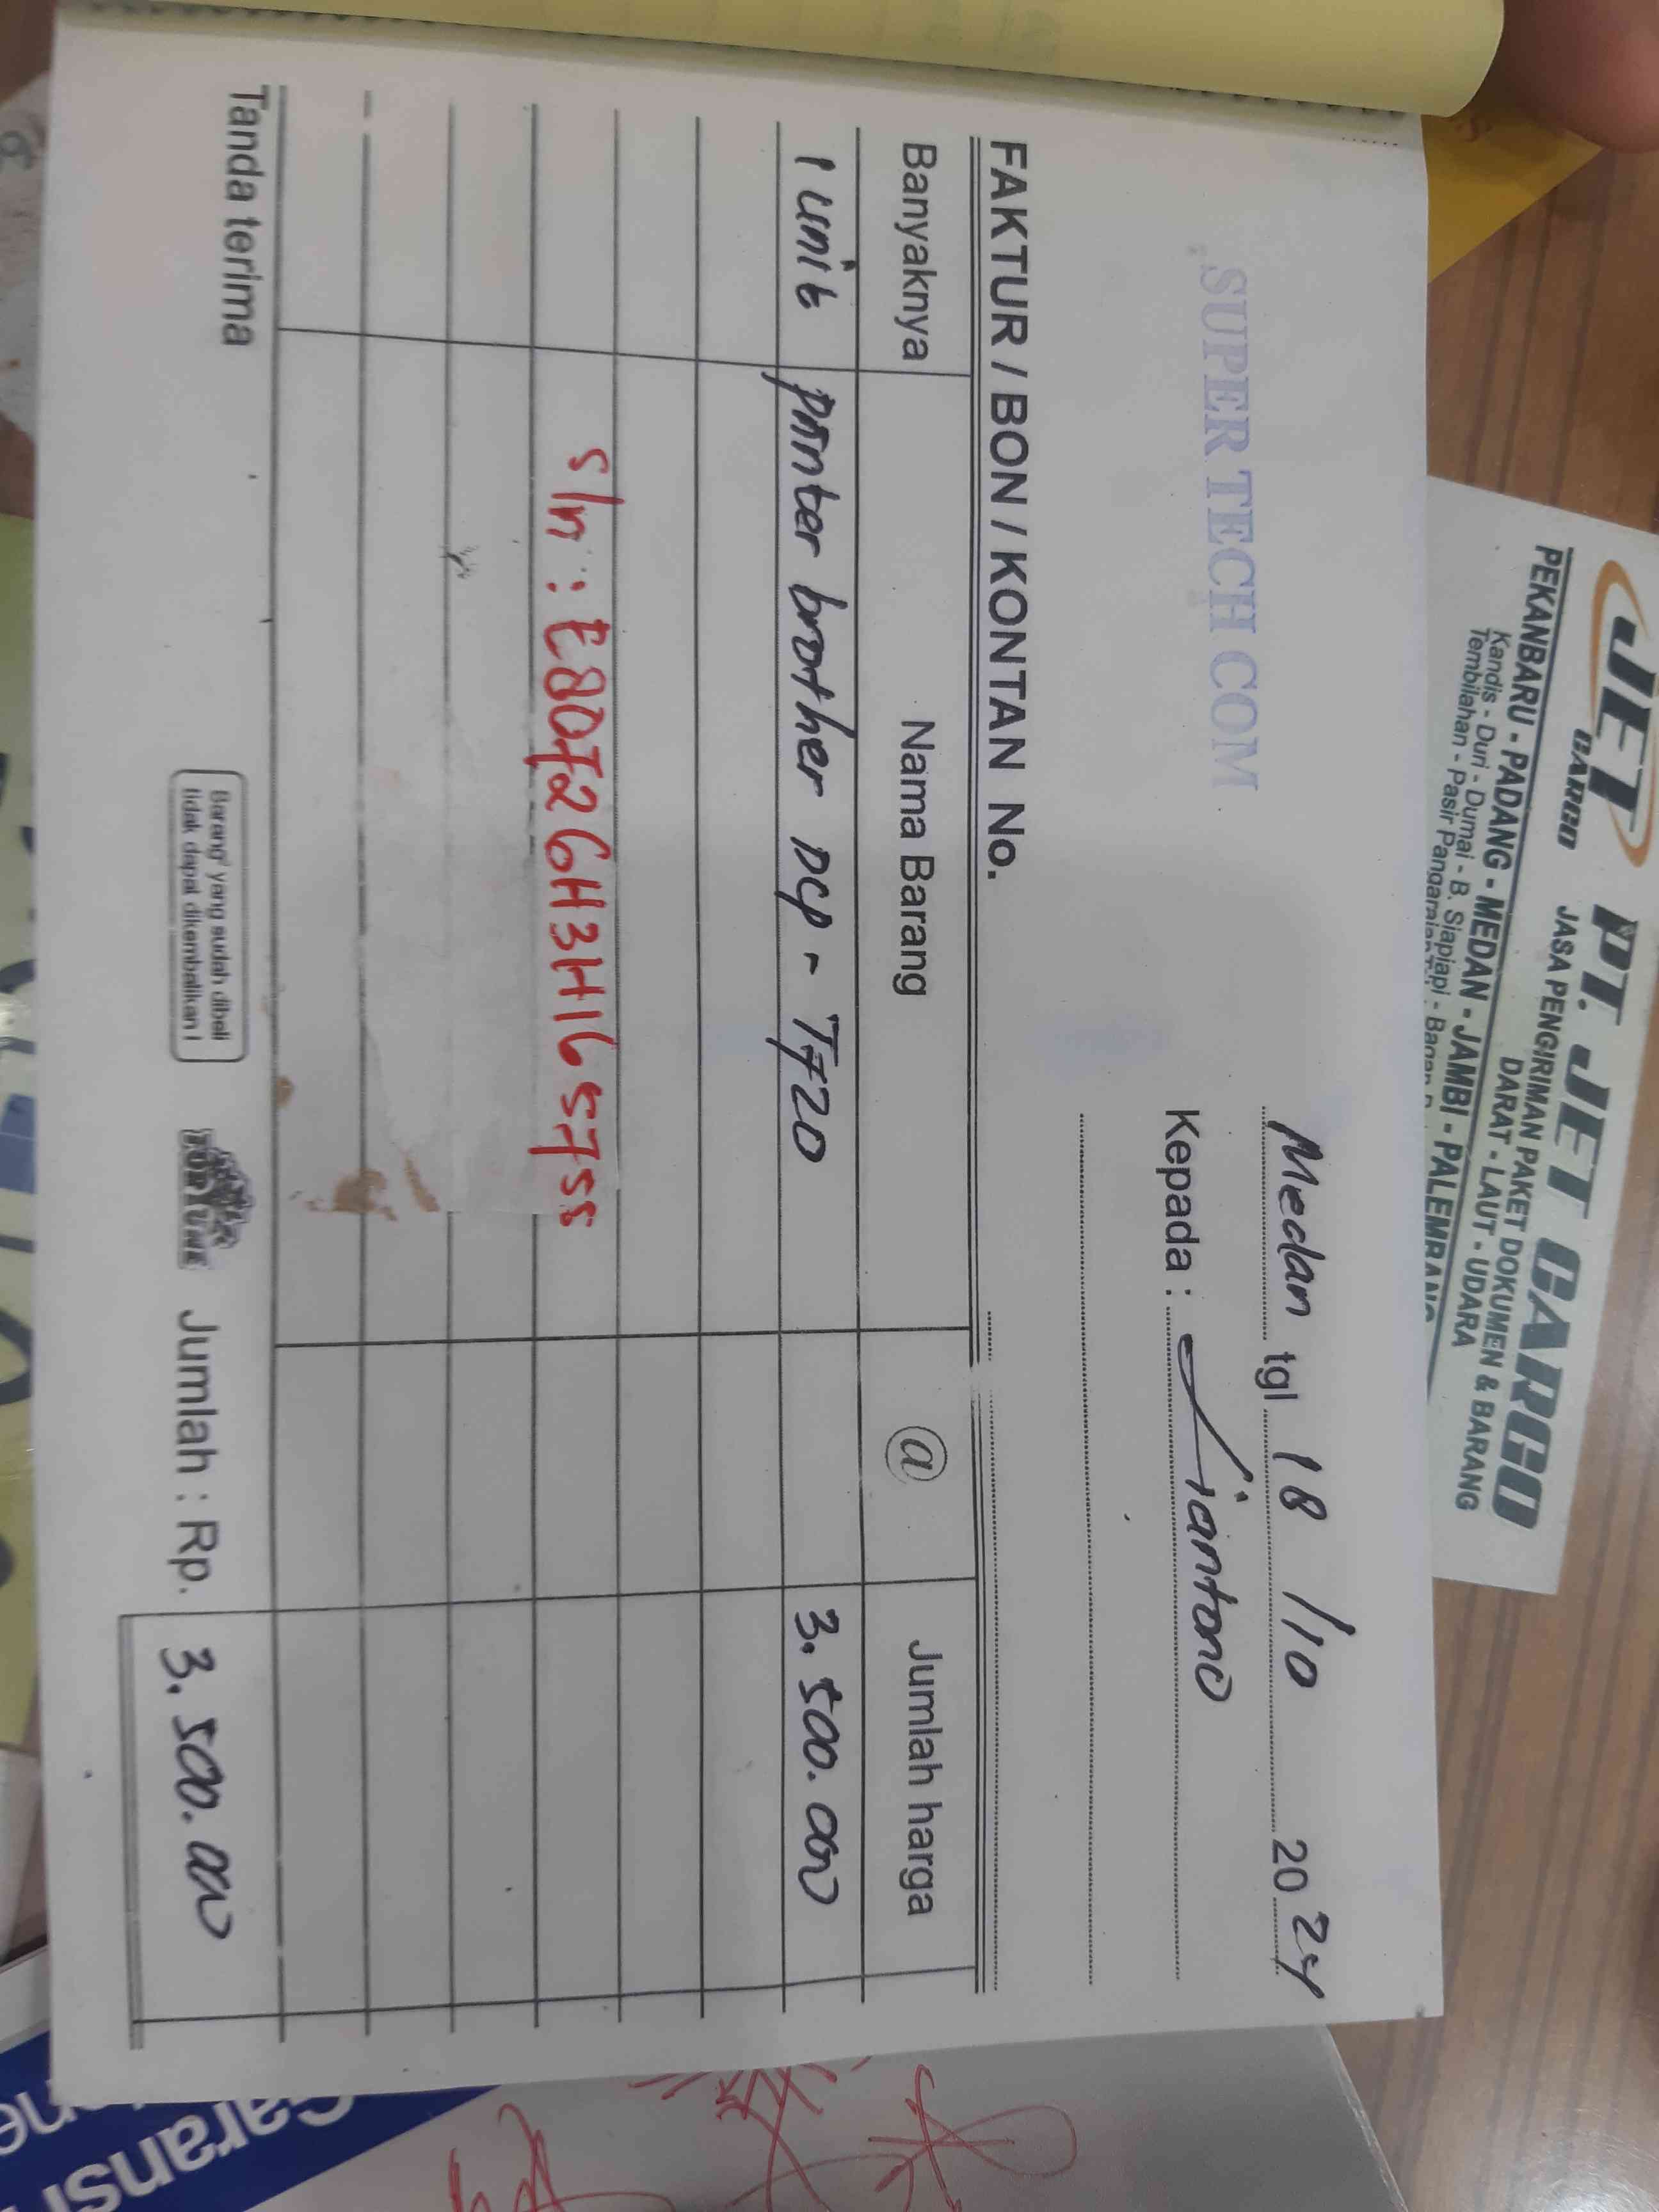 SUPER TECH COM
Medan tgl 18/10 2024
Kepada : Liantono
FAKTUR / BON / KONTAN No.
Banyaknya Nama Barang @ Jumlah harga
1 unit printer brother DCP - T720 3.500.000
s/n : E80726H3H165755
Tanda terima
Barang² yang sudah dibeli
tidak dapat dikembalikan !
FORTUNE
Jumlah : Rp. 3.500.000
JET CARGO
PT. JET CARGO
JASA PENGIRIMAN PAKET DOKUMEN & BARANG
DARAT - LAUT - UDARA
PEKANBARU - PADANG - MEDAN - JAMBI - PALEMBANG
Kandis - Duri - Dumai - B. Siapiapi - Bagan
Tembilahan - Pasir Pangaraian
Garansi